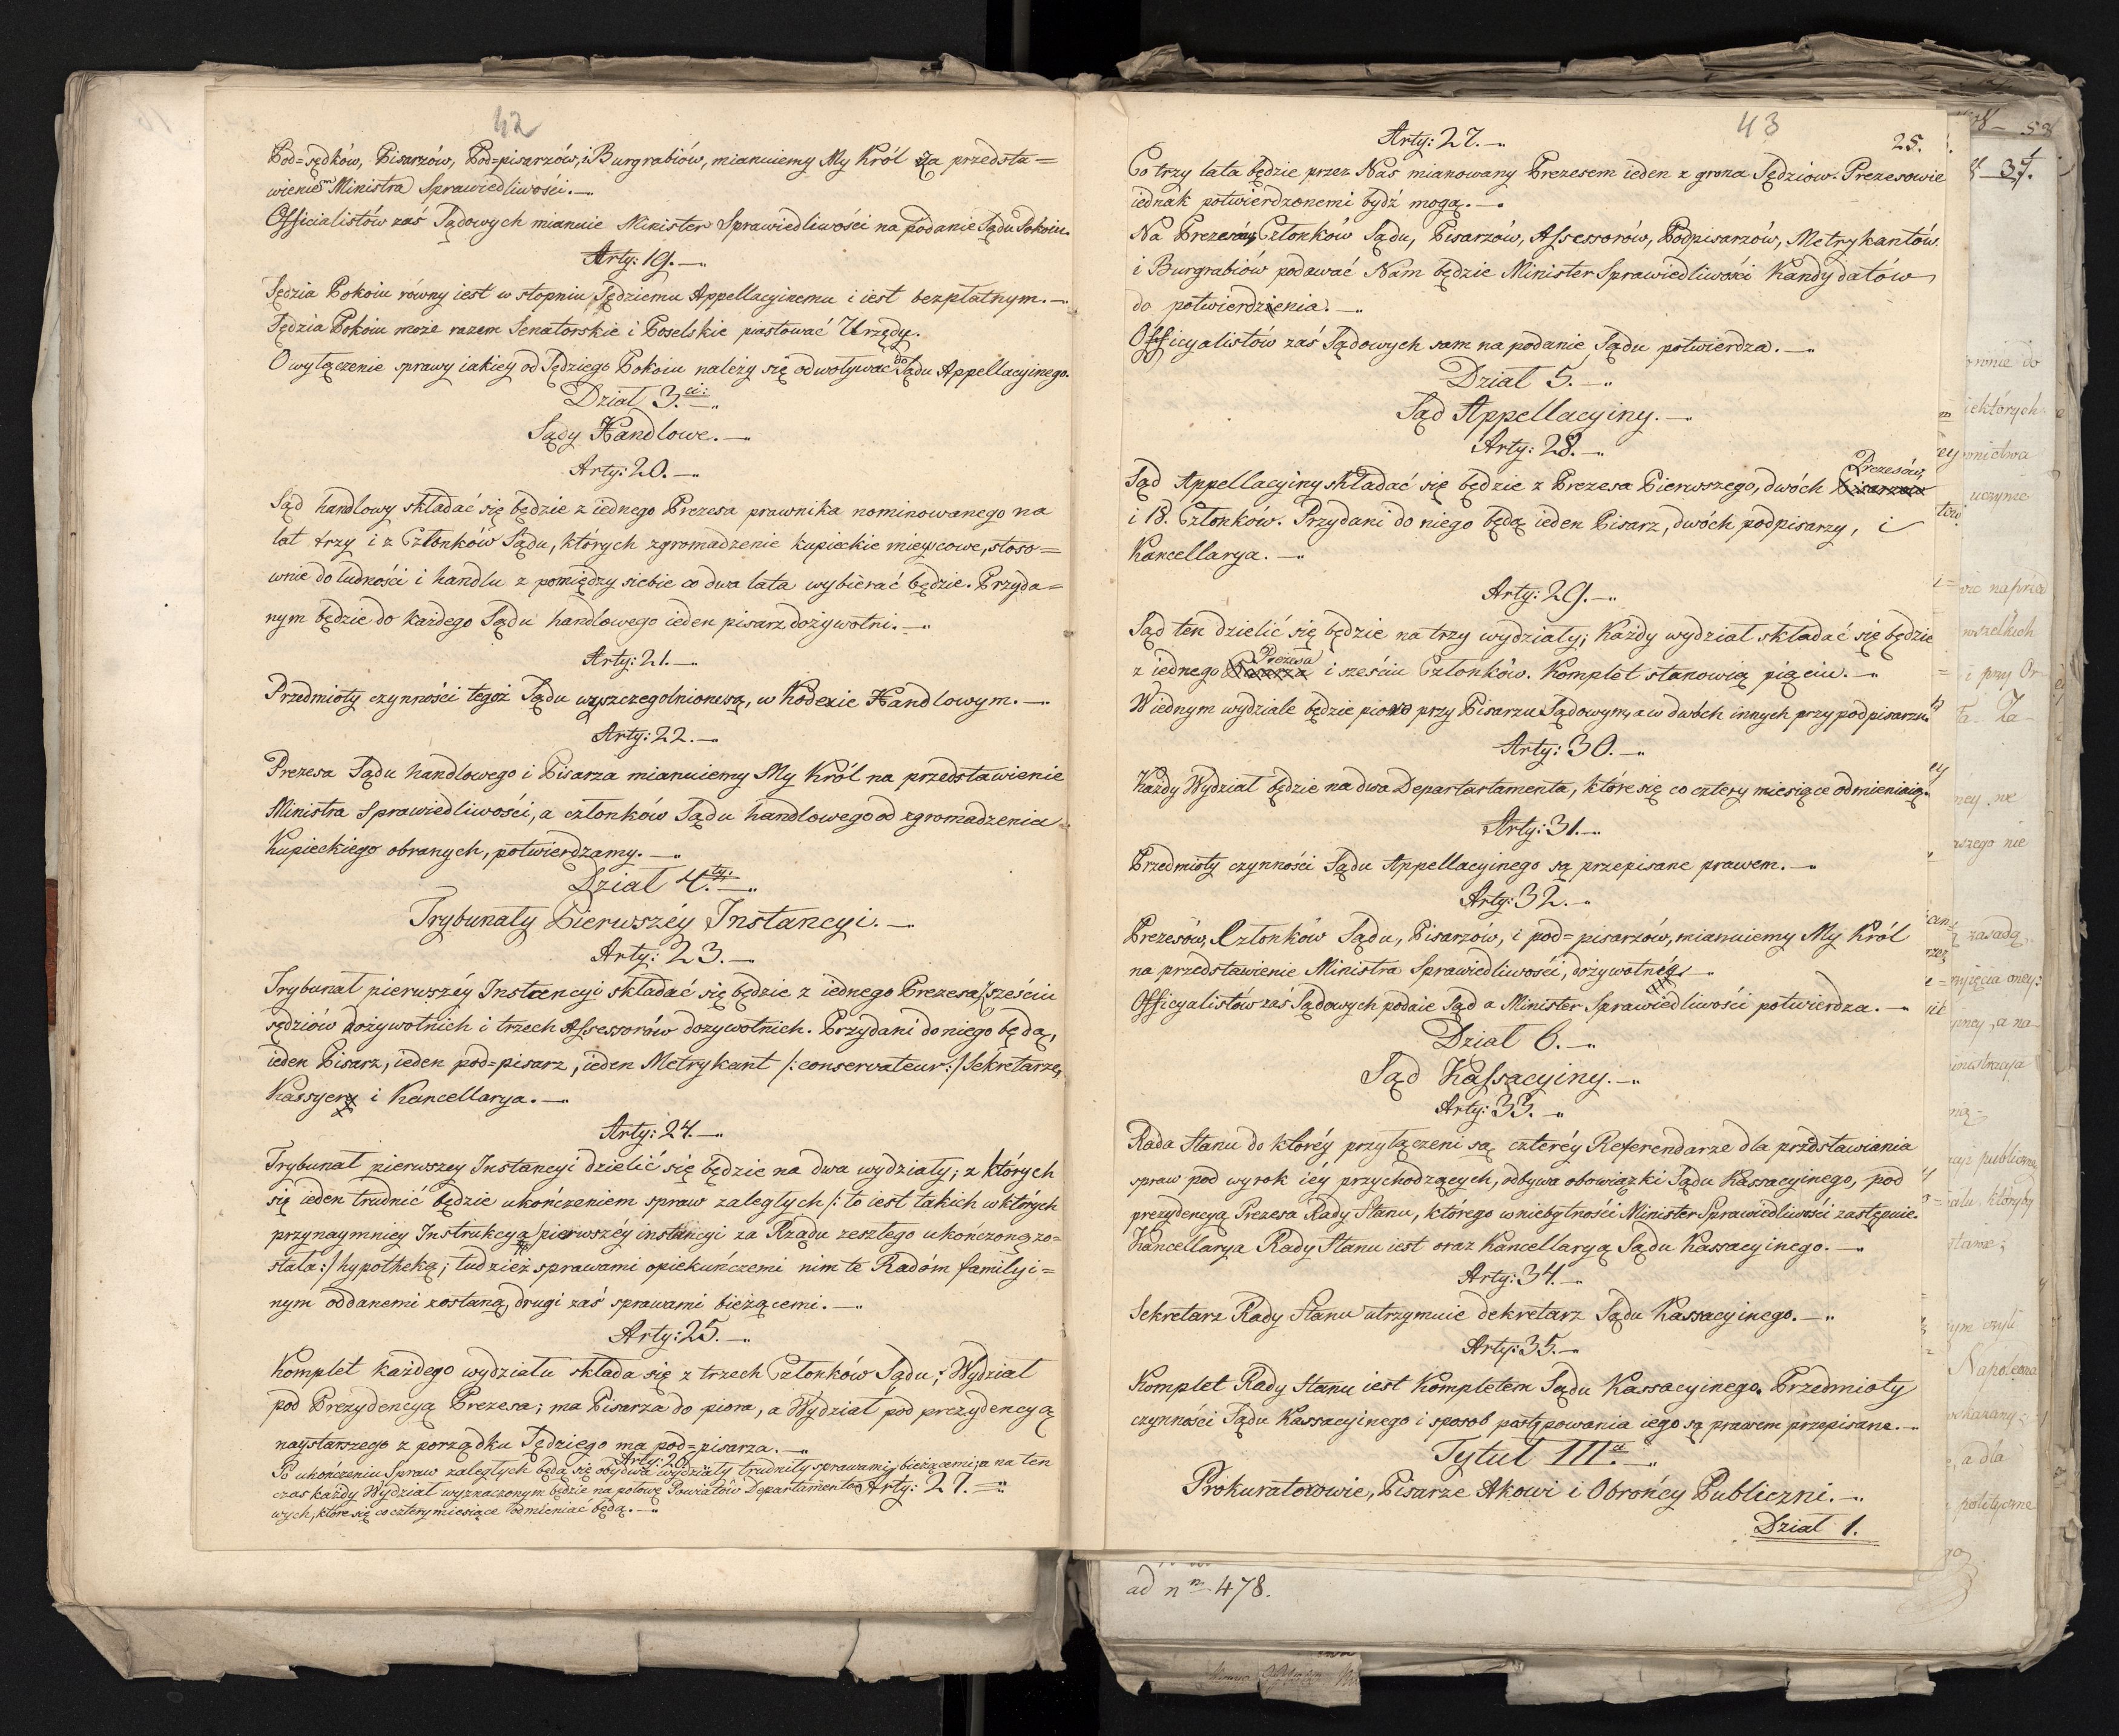 42
Pod=sędków, Pisarzów, Pod=pisarzów, i Burgrabiów, mianuiemy My Król za przedsta=
wieniem Ministra Sprawiedliwości.
Officialistów zaś Sądowych mianuie Minister Sprawiedliwości na podanie Sądu Pokoiu.
Arty: 19.
Sędzia Pokoiu równy iest w stopniu Sędziemu Appellacyinemu i iest bezpłatnym.
Sędzia Pokoiu może razem Senatorskie i Poselskie piastować Urzędy.
O wyłączenie sprawy iakiey od Sędziego Pokoiu należy się odwoływać do Sądu Appellacyinego.
Dział 3.ci:
Sądy Handlowe.
Arty: 20.
Sąd handlowy składać się będzie z iednego Prezesa prawnika nominowanego na
lat trzy i z Członków Sądu, których zgromadzenie kupieckie mieyscowe, stoso=
wnie do ludności i handlu z pomiędzy siebie co dwa lata wybierać będzie. Przyda=
nym będzie do każdego Sądu handlowego ieden pisarz dożywotni.
Arty: 21.
Przedmioty czynności tegoż Sądu wyszczegolnione są, w Kodexie Handlowym.
Arty: 22.
Prezesa Sądu handlowego i Pisarza mianuiemy My Król na przedstawienie
Ministra Sprawiedliwości, a członków Sądu handlowego od zgromadzenia
Kupieckiego obranych, potwierdzamy.
Dział 4.ty:
Trybunały Pierwszéy Instancyi.
Arty: 23.
Trybunał pierwszéy Instancyi składać się będzie z iednego Prezesa, sześciu
sędziów dożywotnich i trzech Assessorów dozywotnich. Przydani do niego będą,
ieden Pisarz, ieden pod=pisarz, ieden Metrykant /: conservateur :/ Sekretarze,
Kassyer i Kancellarya.
Arty: 24.
Trybunał pierwszey Instancyi dzielić się będzie na dwa wydziały; z których
się ieden trudnić będzie ukończeniem spraw zaległych /: to iest takich w których
przynaymniey Instrukcya pierwszéy instancyi za Rządu zeszłego ukończoną zo=
stała :/ hypotheką; tudzież sprawami opiekuńczemi nim te Radóm familyi=
nym oddanemi zostaną, drugi zaś sprawami bieżącemi.
Arty: 25.
Komplet każdego wydziału składa się z trzech Członków Sądu; Wydział
pod Prezydencyą Prezesa; ma Pisarza do piora, a Wydział pod prezydencyą
naystarszego z porządku Sędziego ma pod=pisarza.
Arty: 26.
Po ukończeniu Spraw zaległych będą się obydwa wydziały trudniły sprawami bieżącemi; a na ten
czas każdy Wydział wyznaczonym będzie na połowę Powiatów Departamento= Arty: 27.
wych, które się co cztery miesiące odmieniać będą.
43
25.
Arty: 27.
Co trzy lata będzie przez Nas mianowany Prezesem ieden z grona Sędziow. Prezesowie
iednak potwierdzonemi bydź mogą.
Na Prezesów, Członków Sądu, Pisarzów, Assessorów, Podpisarzów, Metrykantów
i Burgrabiów podawać Nam będzie Minister Sprawiedliwości Kandydatów
do potwierdzenia.
Officyalistów zaś Sądowych sam na podanie Sądu potwierdza.
Dział 5.
Sąd Appellacyiny.
Arty: 28.
Prezesów,
Sąd Appellacyiny składać się będzie z Prezesa Pierwszego, dwóch Pisarzow
i 18. Członków. Przydani do niego będą ieden Pisarz, dwóch podpisarzy, i
Kancellarya.
Arty: 29.
Sąd ten dzielić się będzie na trzy wydziały; Każdy wydział składać się będzie
Prezesa
z iednego Pisarza i sześciu Członków. Komplet stanowią pięciu.
W iednym wydziale będzie pioro przy Pisarzu Sądowym, a w dwóch innych przy podpisarzu.
Arty: 30.
Każdy Wydział będzie na dwa Departartamenta, które się co cztery miesiące odmieniaią.
Arty: 31.
Przedmioty czynności Sądu Appellacyinego są przepisane prawem.
Arty: 32.
Prezesów, Członków Sądu, Pisarzów, i pod=pisarzów, mianuiemy My Król
na przedstawienie Ministra Sprawiedliwości, dożywotnie
Officyalistów zaś Sądowych podaie Sąd a Minister Sprawiedliwości potwierdza.
Dział 6.
Sąd Kassacyiny.
Arty: 33.
Rada Stanu do któréy przyłączeni są czteréy Referendarze dla przedstawiania
spraw pod wyrok iéy przychodzących, odbywa obowiązki Sądu Kassacyinego, pod
prezydencyą Prezesa Rady Stanu, którego w niebytności Minister Sprawiedliwości zastępuie.
Kancellarya Rady Stanu iest oraz Kancellaryą Sądu Kassacyinego.
Arty: 34.
Sekretarz Rady Stanu utrzymuie dekretarz Sądu Kassacyinego.
Arty: 35.
Komplet Rady Stanu iest Kompletem Sądu Kassacyinego. Przedmioty
czynności Sądu Kassacyinego i sposob postępowania iego są prawem przepisane.
Tytuł III.ci
Prokuratorowie, Pisarze Akowi i Obrońcy Publiczni.
Dział 1.
ad nm 478.